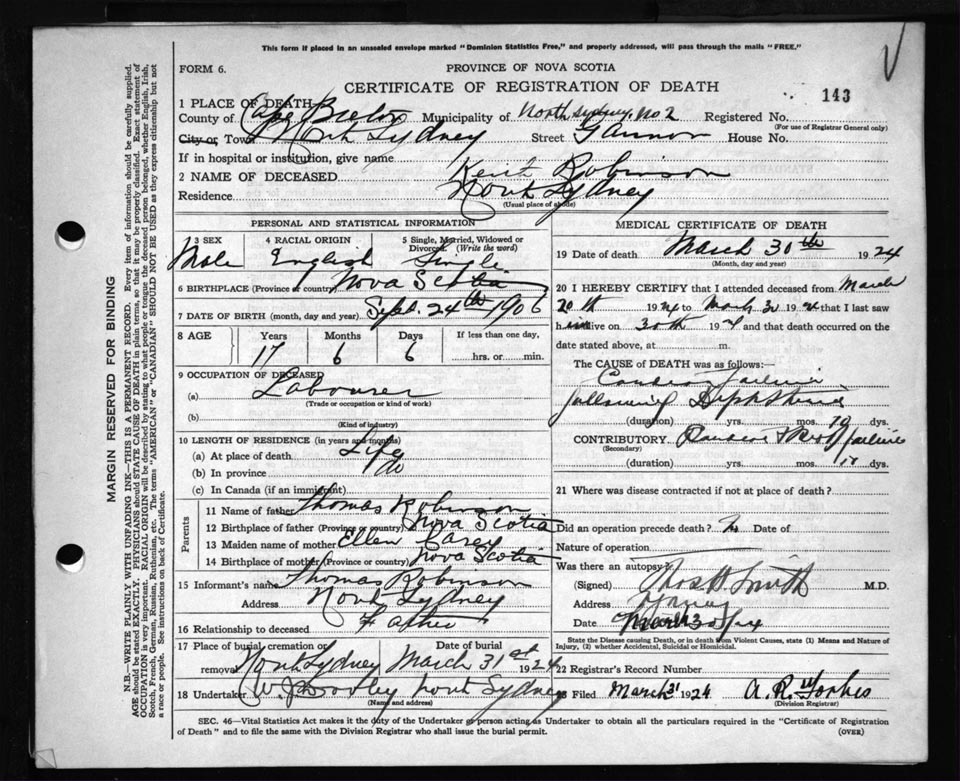 This form if placed in an unsealed envelope marked "Dominion Statistics Free," and properly addressed, will pass through the mails "FREE."
FORM 6.
PROVINCE OF NOVA SCOTIA
CERTIFICATE OF REGISTRATION OF DEATH
143
1 PLACE OF DEATH—
County of Cape Breton Municipality of North Sydney No 2 Registered No.
(For use of Registrar General only)
City or Town North Sydney Street Gannon House No.
If in hospital or institution, give name
2 NAME OF DECEASED Keith Robinson
Residence North Sydney
(Usual place of abode)
PERSONAL AND STATISTICAL INFORMATION
3 SEX 4 RACIAL ORIGIN 5 Single, Married, Widowed or Divorced. (Write the word)
Male English Single
6 BIRTHPLACE (Province or country) Nova Scotia
7 DATE OF BIRTH (month, day and year) Sept. 24th 1906
8 AGE Years Months Days If less than one day,
17 6 6 hrs. or min.
9 OCCUPATION OF DECEASED
(a) Labourer
(Trade or occupation or kind of work)
(b)
(Kind of industry)
10 LENGTH OF RESIDENCE (in years and months)
(a) At place of death Life
(b) In province do
(c) In Canada (if an immigrant)
Parents
11 Name of father Thomas Robinson
12 Birthplace of father (Province or country) Nova Scotia
13 Maiden name of mother Ellen Carey
14 Birthplace of mother (Province or country) Nova Scotia
15 Informant's name Thomas Robinson
Address North Sydney
16 Relationship to deceased Father
17 Place of burial, cremation or removal Date of burial
North Sydney March 31st 1924
18 Undertaker North Sydney
(Name and address)
MEDICAL CERTIFICATE OF DEATH
19 Date of death March 30th 1924
(Month, day and year)
20 I HEREBY CERTIFY that I attended deceased from March
20th 1924 to March 30 1924 that I last saw
h alive on 30th 192 and that death occurred on
date stated above, at m.
The CAUSE OF DEATH was as follows:
Cardiac failure
following Diphtheria
(duration) yrs. mos. 10 dys.
CONTRIBUTORY. failure
(Secondary)
(duration) yrs. mos. dys.
21 Where was disease contracted if not at place of death?
Did an operation precede death? Date of
Nature of operation
Was there an autopsy?
(Signed) Smith M.D.
Address Sydney
Date March 30
State the Disease causing Death, or in death from Violent Causes, state (1) Means and Nature of
Injury, (2) whether Accidental, Suicidal or Homicidal.
22 Registrar's Record Number
Filed March 31 1924 A. R. Forbes
(Division Registrar)
SEC. 46—Vital Statistics Act makes it the duty of the Undertaker or person acting as Undertaker to obtain all the particulars required in the "Certificate of Registration
of Death" and to file the same with the Division Registrar who shall issue the burial permit.
(OVER)
MARGIN RESERVED FOR BINDING
N.B.—WRITE PLAINLY WITH UNFADING INK—THIS IS A PERMANENT RECORD. Every item of information should be carefully supplied.
AGE should be stated EXACTLY. PHYSICIANS should STATE CAUSE OF DEATH in plain terms, so that it may be properly classified. Exact statement of
OCCUPATION is very important. RACIAL ORIGIN will be described by stating to what people or tongue the deceased person belonged, whether English, Irish,
Scotch, French, German, Russian, Ruthenian, etc. The terms "AMERICAN" or "CANADIAN" SHOULD NOT BE USED as they express citizenship but not
a race or people. See instructions on back of Certificate.